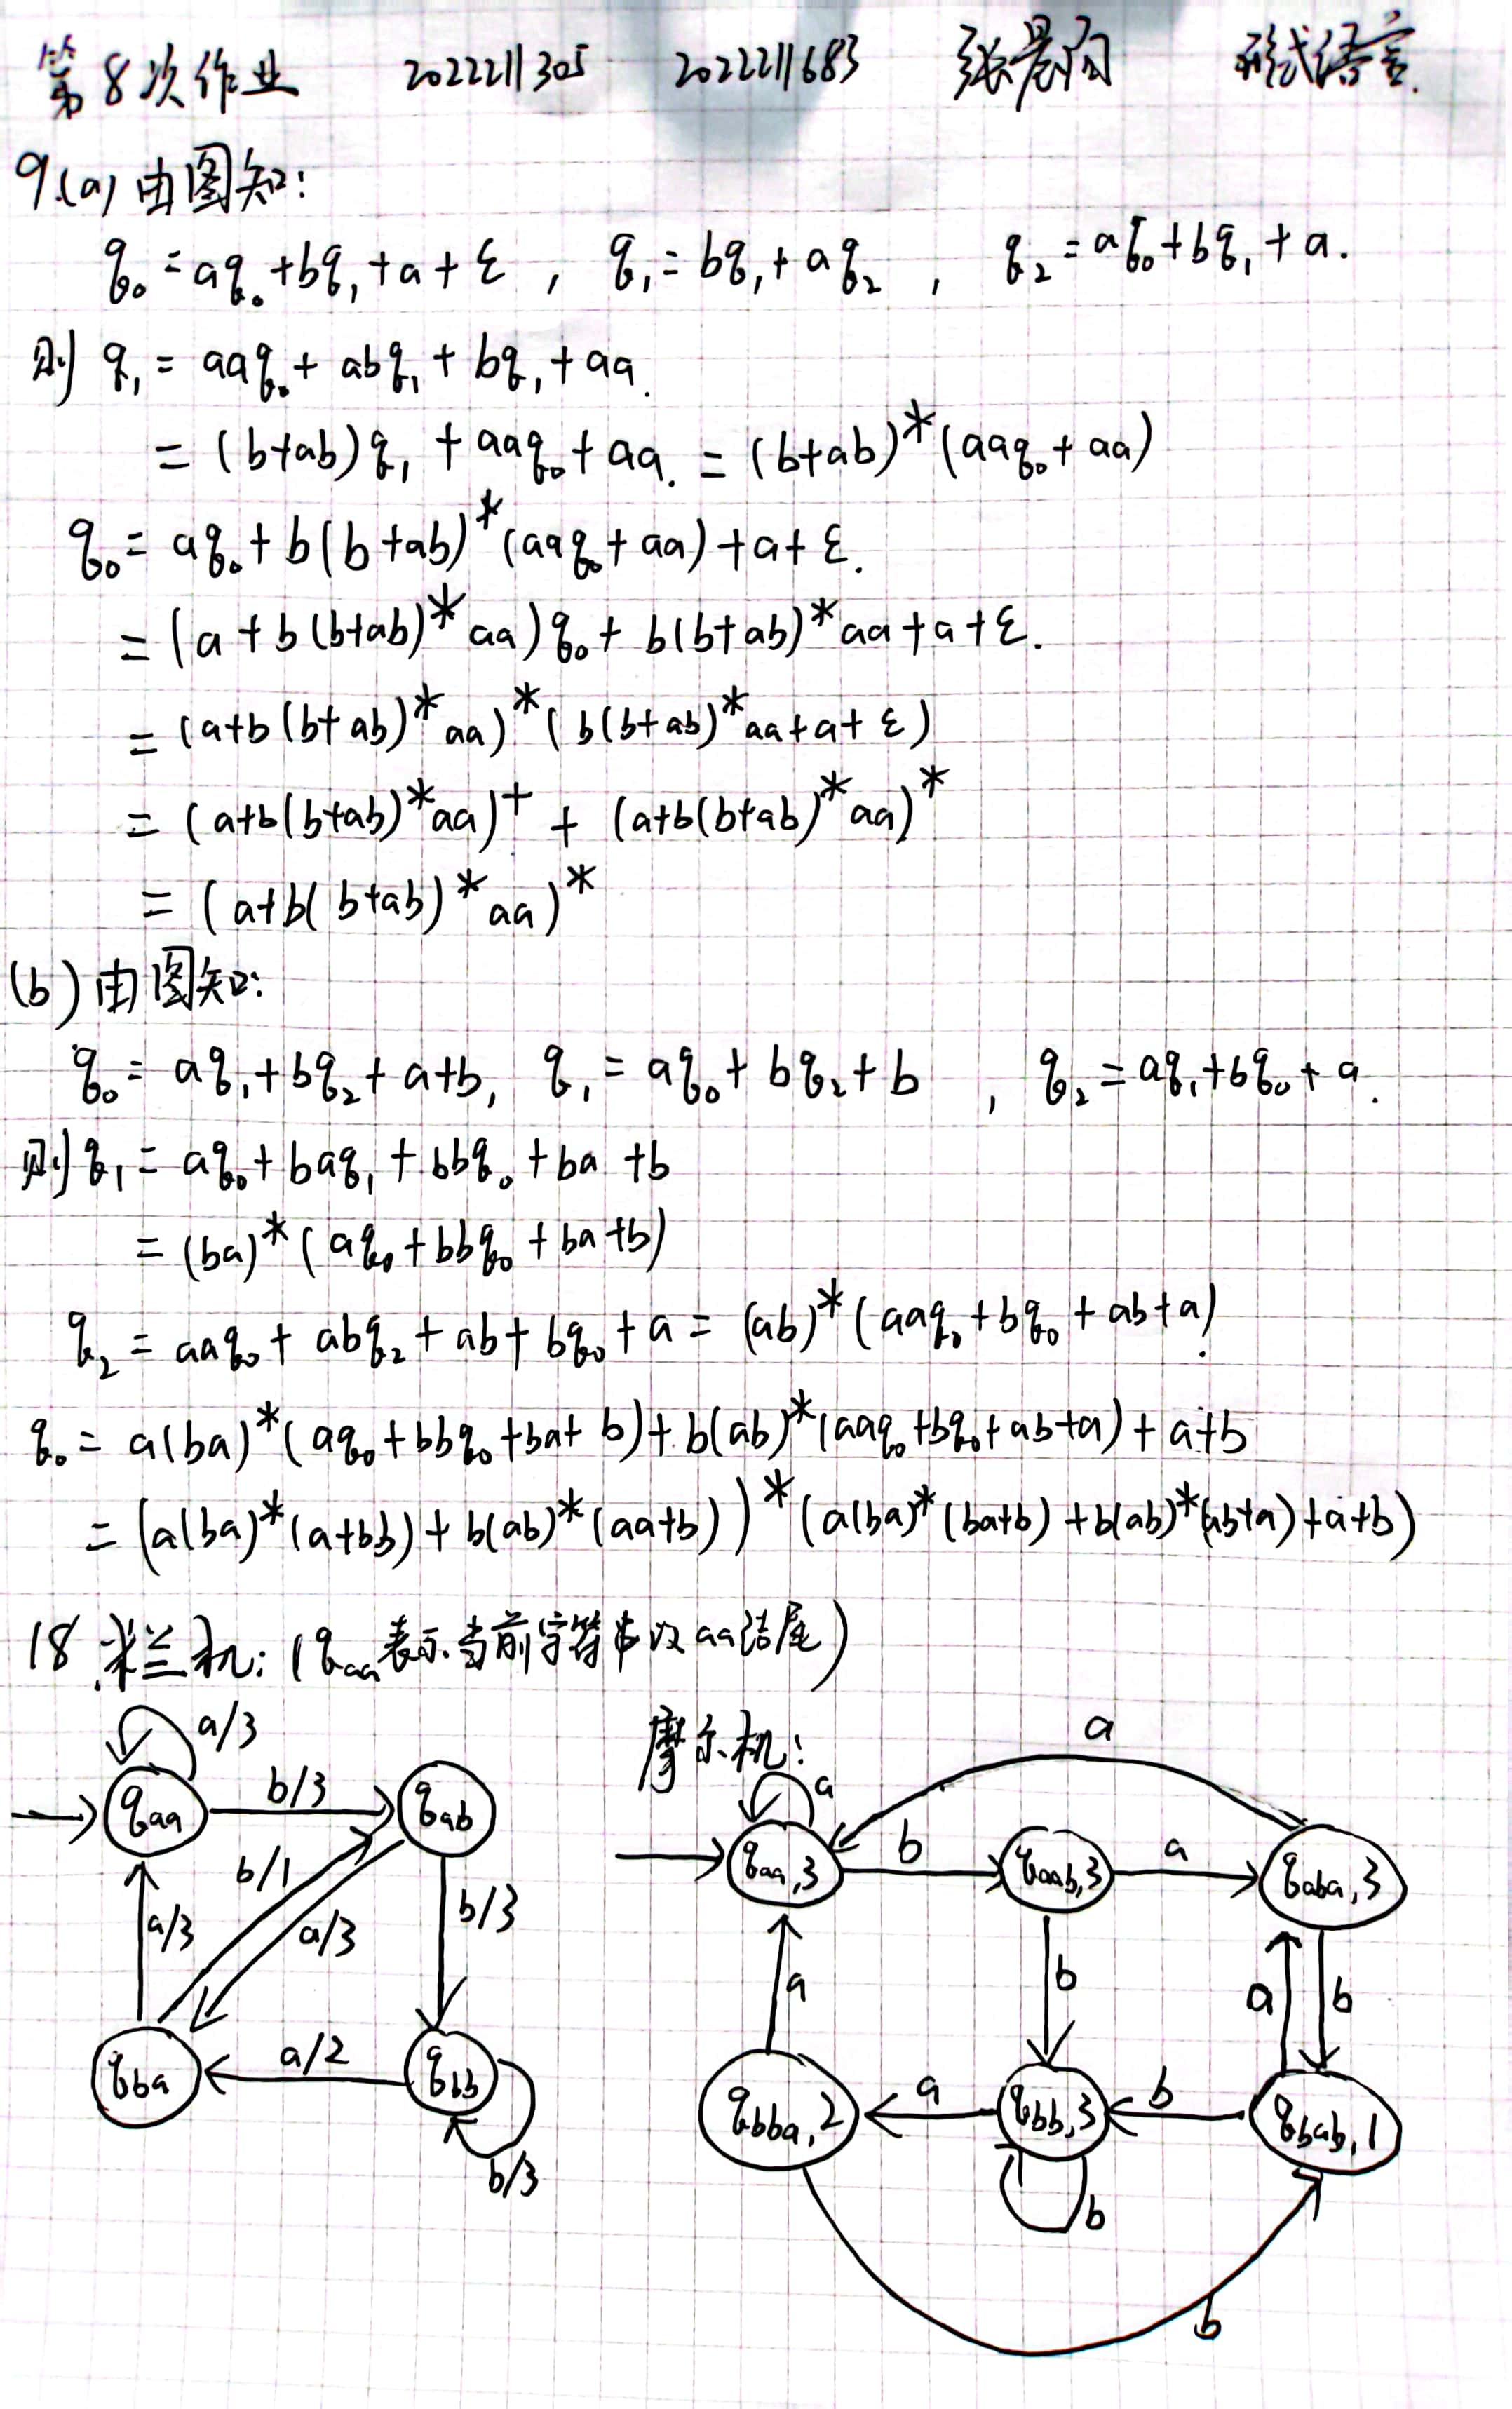 第8次作业 2022211305 2022211683 张晨阳 形式语言.
9.(a) 由图知:
q₀ = aq₀ + bq₁ + a + ε , q₁ = bq₁ + aq₂ , q₂ = aq₀ + bq₁ + a.
则 q₁ = aaq₀ + abq₁ + bq₁ + aa.
= (b+ab)q₁ + aaq₀ + aa. = (b+ab)*(aaq₀ + aa)
q₀ = aq₀ + b(b+ab)*(aaq₀ + aa) + a + ε.
= (a + b(b+ab)*aa)q₀ + b(b+ab)*aa + a + ε.
= (a+b(b+ab)*aa)*(b(b+ab)*aa + a + ε)
= (a+b(b+ab)*aa)⁺ + (a+b(b+ab)*aa)*
= (a+b(b+ab)*aa)*
(b) 由图知:
q₀ = aq₁ + bq₂ + a+b, q₁ = aq₀ + bq₂ + b , q₂ = aq₁ + bq₀ + a.
则 q₁ = aq₀ + baq₁ + bbq₀ + ba + b
= (ba)*(aq₀ + bbq₀ + ba + b)
q₂ = aaq₀ + abq₂ + ab + bq₀ + a = (ab)*(aaq₀ + bq₀ + ab + a).
q₀ = a(ba)*(aq₀ + bbq₀ + ba + b) + b(ab)*(aaq₀ + bq₀ + ab + a) + a+b
= (a(ba)*(a+bb) + b(ab)*(aa+b))*(a(ba)*(ba+b) + b(ab)*(ab+a) + a+b)
18.米兰机: (q_aa表示当前字符串以aa结尾)
摩尔机:
a/3
q_aa b/3 q_ab
b/1
a/3 a/3 b/3
q_ba a/2 q_bb
b/3
a
a
q_aa,3 b q_aab,3 a q_aba,3
a b a b
q_bba,2 a q_bb,3 b q_bab,1
b
b